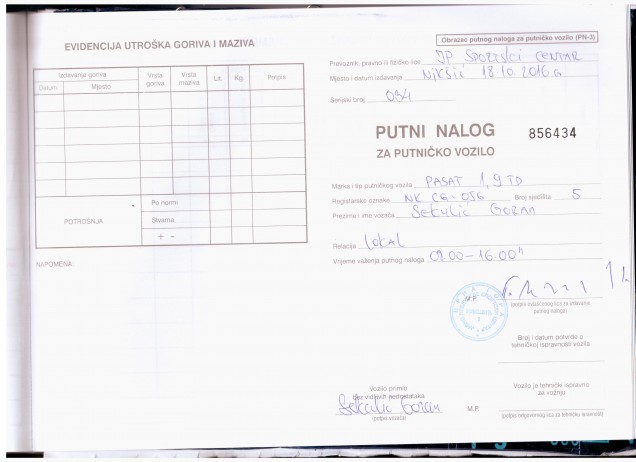 EVIDENCIJA UTROŠKA GORIVA I MAZIVA
Izdavanje goriva
Datum
Mjesto
Vrsta goriva
Vrsta maziva
Lit.
Kg.
Potpis
POTROŠNJA
Po normi
Stvarna
+ -
NAPOMENA:
Obrazac putnog naloga za putničko vozilo (PN-3)
Prevoznik, pravno ili fizičko lice JP SPORTSKI CENTAR
Mjesto i datum izdavanja NIKŠIĆ 18.10.2016 g
Serijski broj 034
PUTNI NALOG 856434
ZA PUTNIČKO VOZILO
Marka i tip putničkog vozila PASAT 1,9 TD
Registarske oznake NK CG-056 Broj sjedišta 5
Prezime i ime vozača SEKULIĆ GORAN
Relacija LOKAL
Vrijeme važenja putnog naloga 08.00-16.00h
M.P.
(potpis ovlašćenog lica za izdavanje
putnog naloga)
Broj i datum potvrde o
tehničkoj ispravnosti vozila
Vozilo primio
bez vidljivih nedostataka
Sekulić Goran
(potpis vozača)
M.P.
Vozilo je tehnički ispravno
za vožnju
(potpis odgovornog lica za tehničku ispravnost)